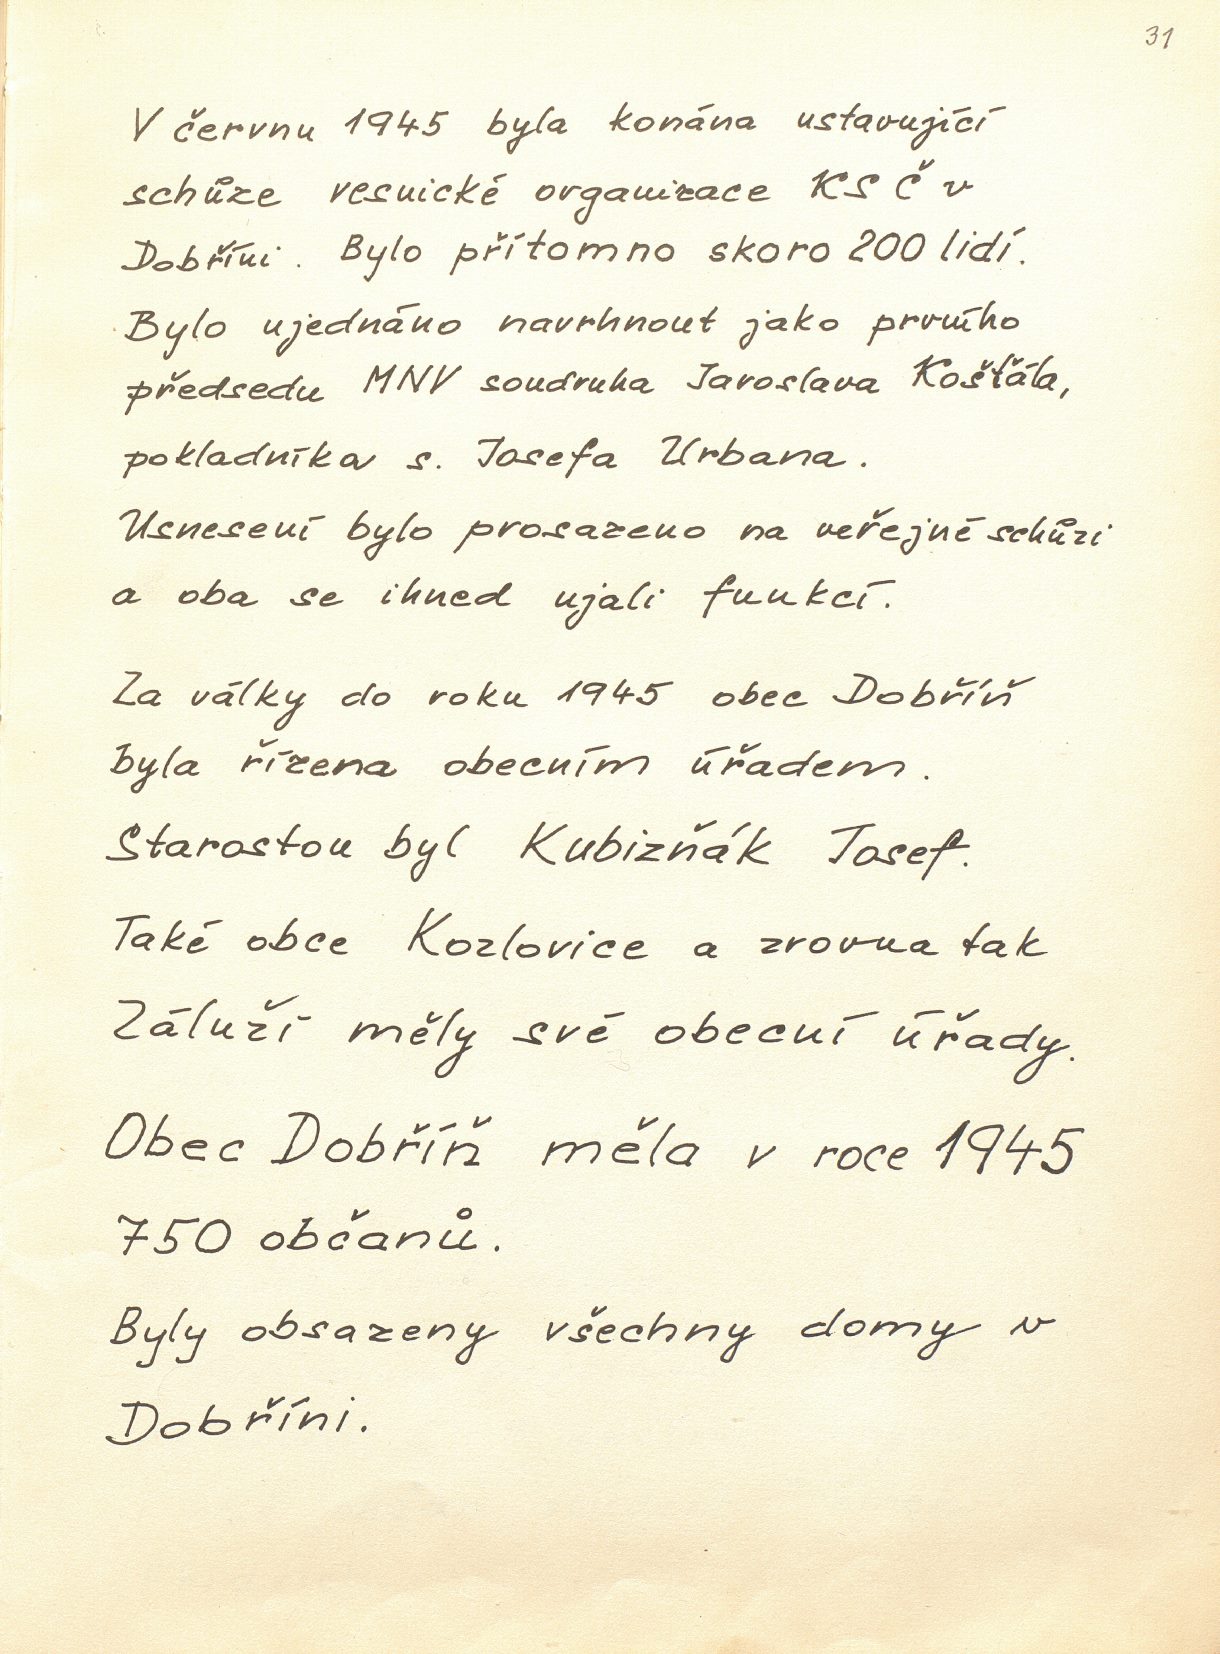 31
V červnu 1945 byla konána ustavující
schůze vesnické organizace KSČ v
Dobříni. Bylo přítomno skoro 200 lidí.
Bylo ujednáno navrhnout jako prvního
předsedu MNV soudruha Jaroslava Košťála,
pokladníka s. Josefa Urbana.
Usnesení bylo prosazeno na veřejné schůzi
a oba se ihned ujali funkcí.
Za války do roku 1945 obec Dobříň
byla řízena obecním úřadem.
Starostou byl Kubizňák Josef.
Také obce Kozlovice a zrovna tak
Záluží měly své obecní úřady.
Obec Dobříň měla v roce 1945
750 občanů.
Byly obsazeny všechny domy v
Dobříni.